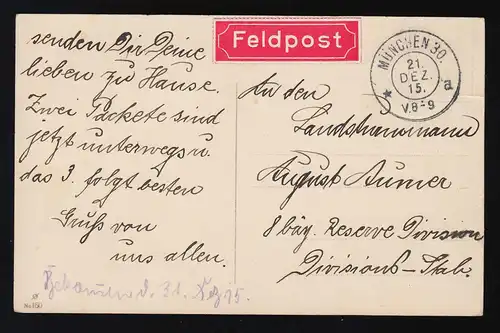 Feldpost
MÜNCHEN 30.
21.
DEZ.
15.
V.8-9
a
senden Dir Deine
lieben zu Hause.
Zwei Packete sind
jetzt unterwegs u.
das 3. folgt besten
Gruß von
uns allen.
An den
Landsturmmann
August Aumer
8 bay. Reserve Division
Divisions-Stab.
d. 31. Dez 15.